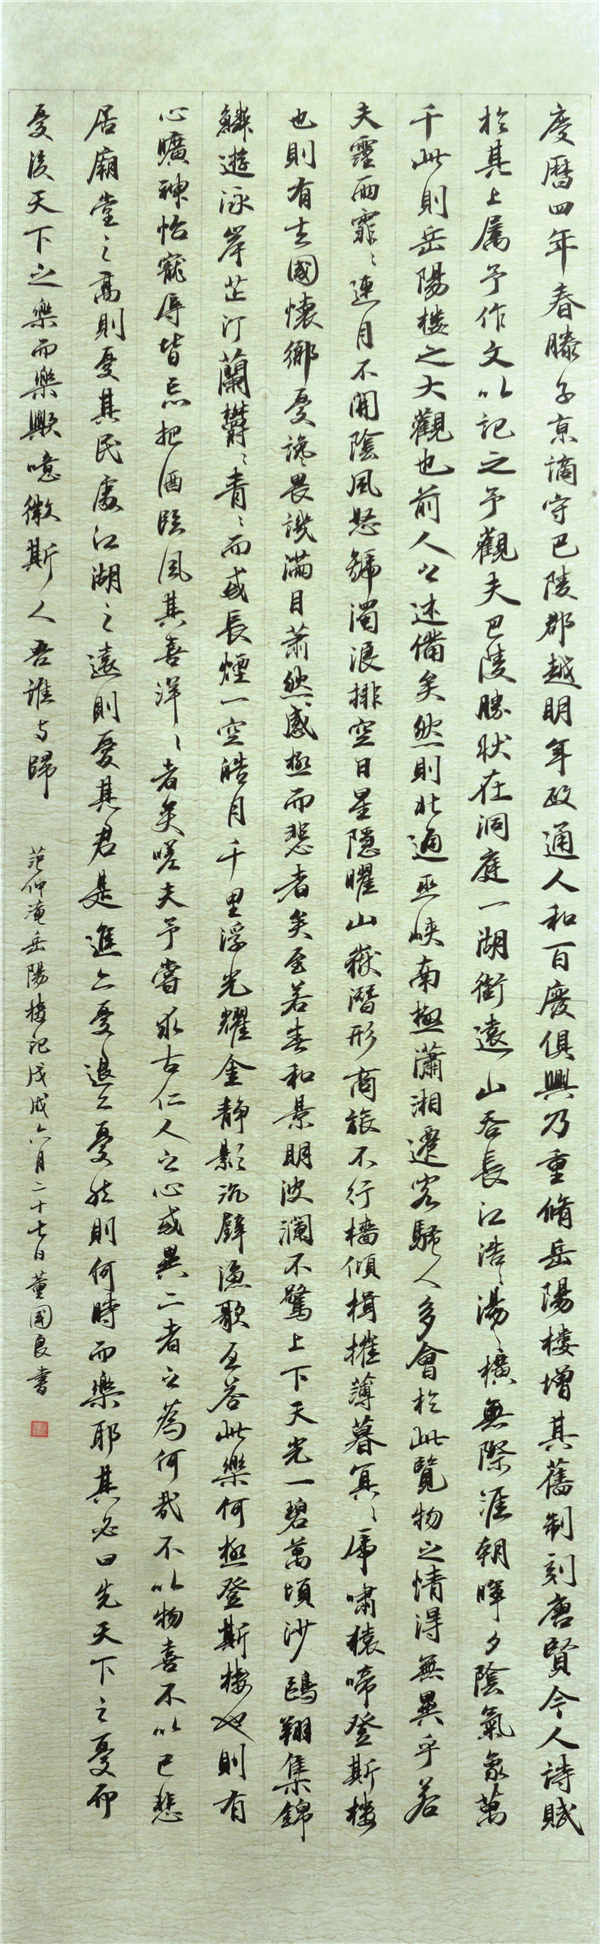 慶曆四年春滕子京謫守巴陵郡越明年政通人和百廢俱興乃重脩岳陽樓增其舊制刻唐賢今人詩賦
於其上属予作文以記之予觀夫巴陵勝狀在洞庭一湖銜遠山吞長江浩浩湯湯橫無際涯朝暉夕陰氣象萬
千此則岳陽樓之大觀也前人之述備矣然則北通巫峽南極瀟湘遷客騷人多會於此覽物之情得無異乎若
夫霪雨霏霏連月不開陰風怒號濁浪排空日星隱曜山嶽潛形商旅不行檣傾楫摧薄暮冥冥虎嘯猿啼登斯樓
也則有去國懷鄉憂讒畏譏滿目蕭然感極而悲者矣至若春和景明波瀾不驚上下天光一碧萬頃沙鷗翔集錦
鱗遊泳岸芷汀蘭鬱鬱青青而或長煙一空皓月千里浮光耀金靜影沉璧漁歌互答此樂何極登斯樓也則有
心曠神怡寵辱皆忘把酒臨風其喜洋洋者矣嗟夫予嘗求古仁人之心或異二者之為何哉不以物喜不以己悲
居廟堂之高則憂其民處江湖之遠則憂其君是進亦憂退亦憂然則何時而樂耶其必曰先天下之憂而
憂後天下之樂而樂歟噫微斯人吾誰與歸
范仲淹岳陽樓記戊戌六月二十七日董國良書